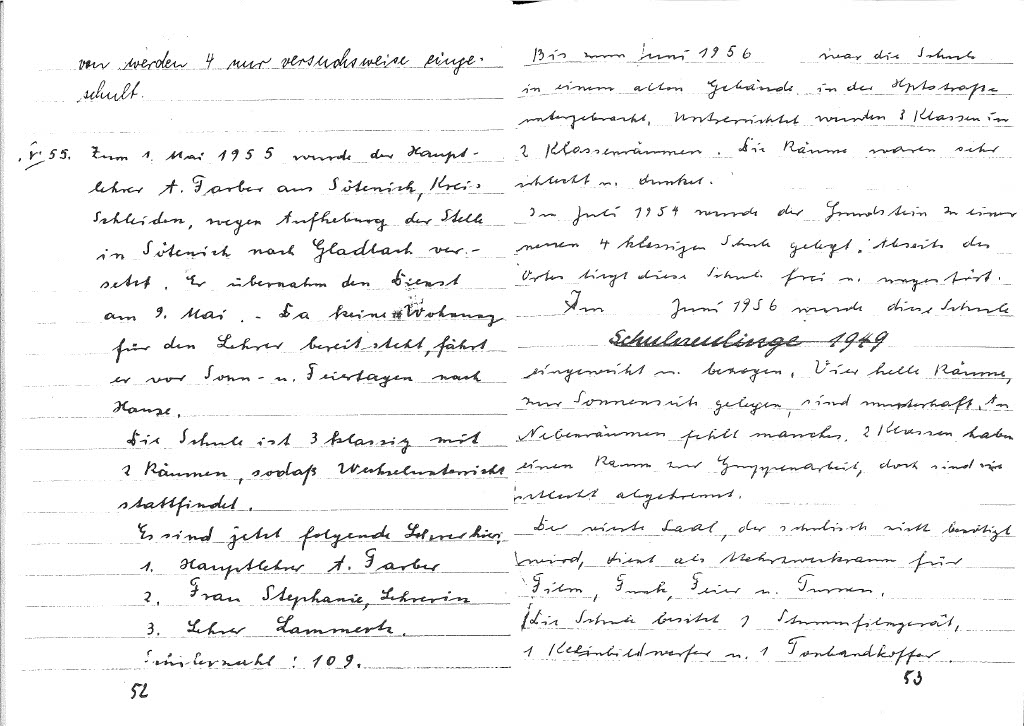 von werden 4 nur versuchsweise einge-
schult.
V. 55. Zum 1. Mai 1955 wurde der Haupt-
lehrer A. Farber aus Sötenich, Kreis
Schleiden, wegen Aufhebung der Stelle
in Sötenich nach Gladbach ver-
setzt. Er übernahm den Dienst
am 9. Mai. - Da keine Wohnung
für den Lehrer bereit steht, fährt
er vor Sonn- u. Feiertagen nach
Hause.
Die Schule ist 3 klassig mit
2 Räumen, sodaß Wechselunterricht
stattfindet.
Es sind jetzt folgende Lehrer hier:
1. Hauptlehrer A. Farber
2. Frau Stephanie, Lehrerin
3. Lehrer Lammertz.
Schülerzahl: 109.
52
Bis zum Juni 1956 war die Schule
in einem alten Gebäude in der Hptstraße
untergebracht. Unterrichtet wurden 3 Klassen in
2 Klassenräumen. Die Räume waren sehr
schlecht u. dunkel.
Im Juli 1954 wurde der Grundstein zu einer
neuen 4 klassigen Schule gelegt. Abseits des
Ortes liegt diese Schule frei u. ungestört.
Am Juni 1956 wurde diese Schule
Schulneulinge 1949
eingeweiht u. bezogen. Vier helle Räume,
zur Sonnenseite gelegen, sind musterhaft. An
Nebenräumen fehlt manches. 2 Klassen haben
einen Raum zur Gruppenarbeit, doch sind sie
schlecht abgetrennt.
Der vierte Saal, der schulisch nicht benötigt
wird, dient als Mehrzweckraum für
Film, Funk, Feier u. Turnen.
Die Schule besitzt 1 Stummfilmgerät,
1 Kleinbildwerfer u. 1 Tonbandkoffer.
53